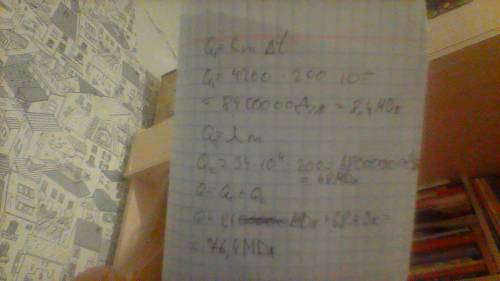 Q₁=cmΔt
Q₁=4200 · 200 · 10=
= 8400000Дж = 8,4МДж
Q₂=λm
Q₂=34·10⁴ · 200=
= 68МДж
Q=Q₁+Q₂
= 76,4МДж